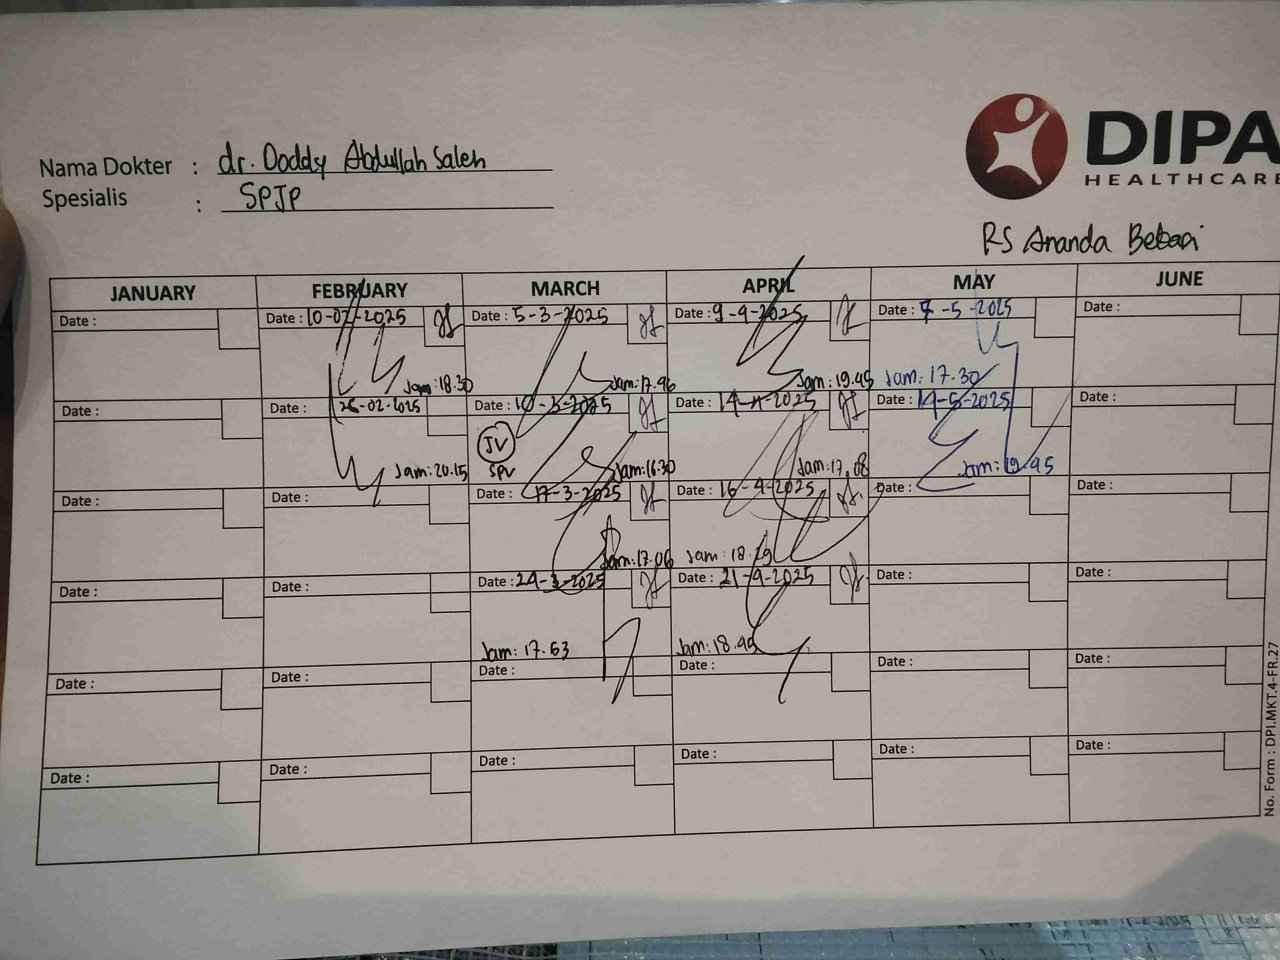 DIPA
HEALTHCARE
Nama Dokter : dr. Doddy Abdullah Saleh
Spesialis : SPJP
RS Ananda Bekasi
JANUARY FEBRUARY MARCH APRIL MAY JUNE
Date : Date : 10-02-2025 Date : 5-3-2025 Date : 9-4-2025 Date : 7-5-2025 Date :
Jam: 18.30 Jam: 17.46 Jam: 19.45 Jam: 17.30
Date : Date : 26-02-2025 Date : 10-3-2025 Date : 14-4-2025 Date : 14-5-2025 Date :
JV
SPV
Jam: 20.15 Jam: 16.30 Jam: 17.08 Jam: 19.45
Date : Date : Date : 17-3-2025 Date : 16-4-2025 Date : Date :
Jam: 17.06 Jam: 18.29
Date : Date : Date : 24-3-2025 Date : 21-4-2025 Date : Date :
Jam: 17.53 Jam: 18.45
Date : Date : Date : Date : Date : Date :
Date : Date : Date : Date : Date : Date :
No. Form : DPI.MKT.4-FR.27